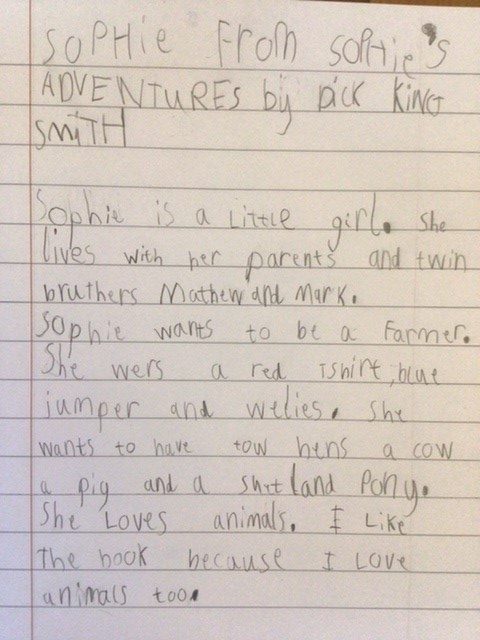 SOPHie From SOPHie's
ADVENTUREs by DiCK KiNG
SmiTH
Sophie is a LiTTLe girl. She
lives with her parents and twin
bruthers Mathew and Mark.
Sophie wants to be a Farmer.
She wers a red Tshirt, blue
jumper and welies. She
wants to have tow hens a cow
a pig and a shetland Pony.
She Loves animals. I Like
The book because I Love
animals too.